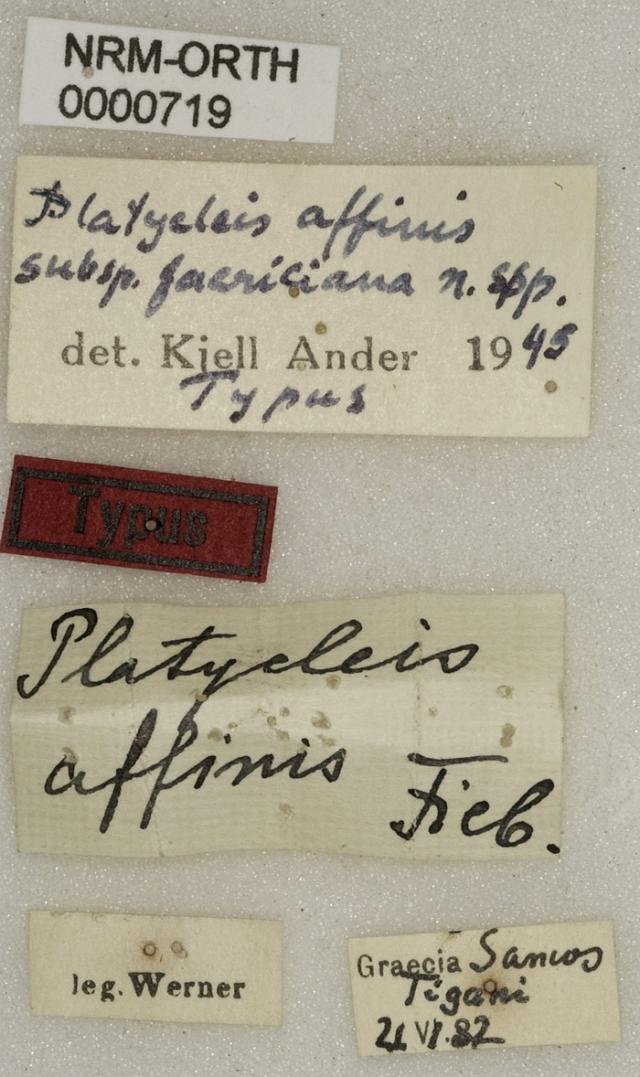 NRM-ORTH
0000719
Platycleis affinis
subsp. n. spp.
det. Kjell Ander 1945
Typus
Typus
Platycleis
affinis
Fieb.
leg. Werner
Graecia Samos
Tigani
VI.32